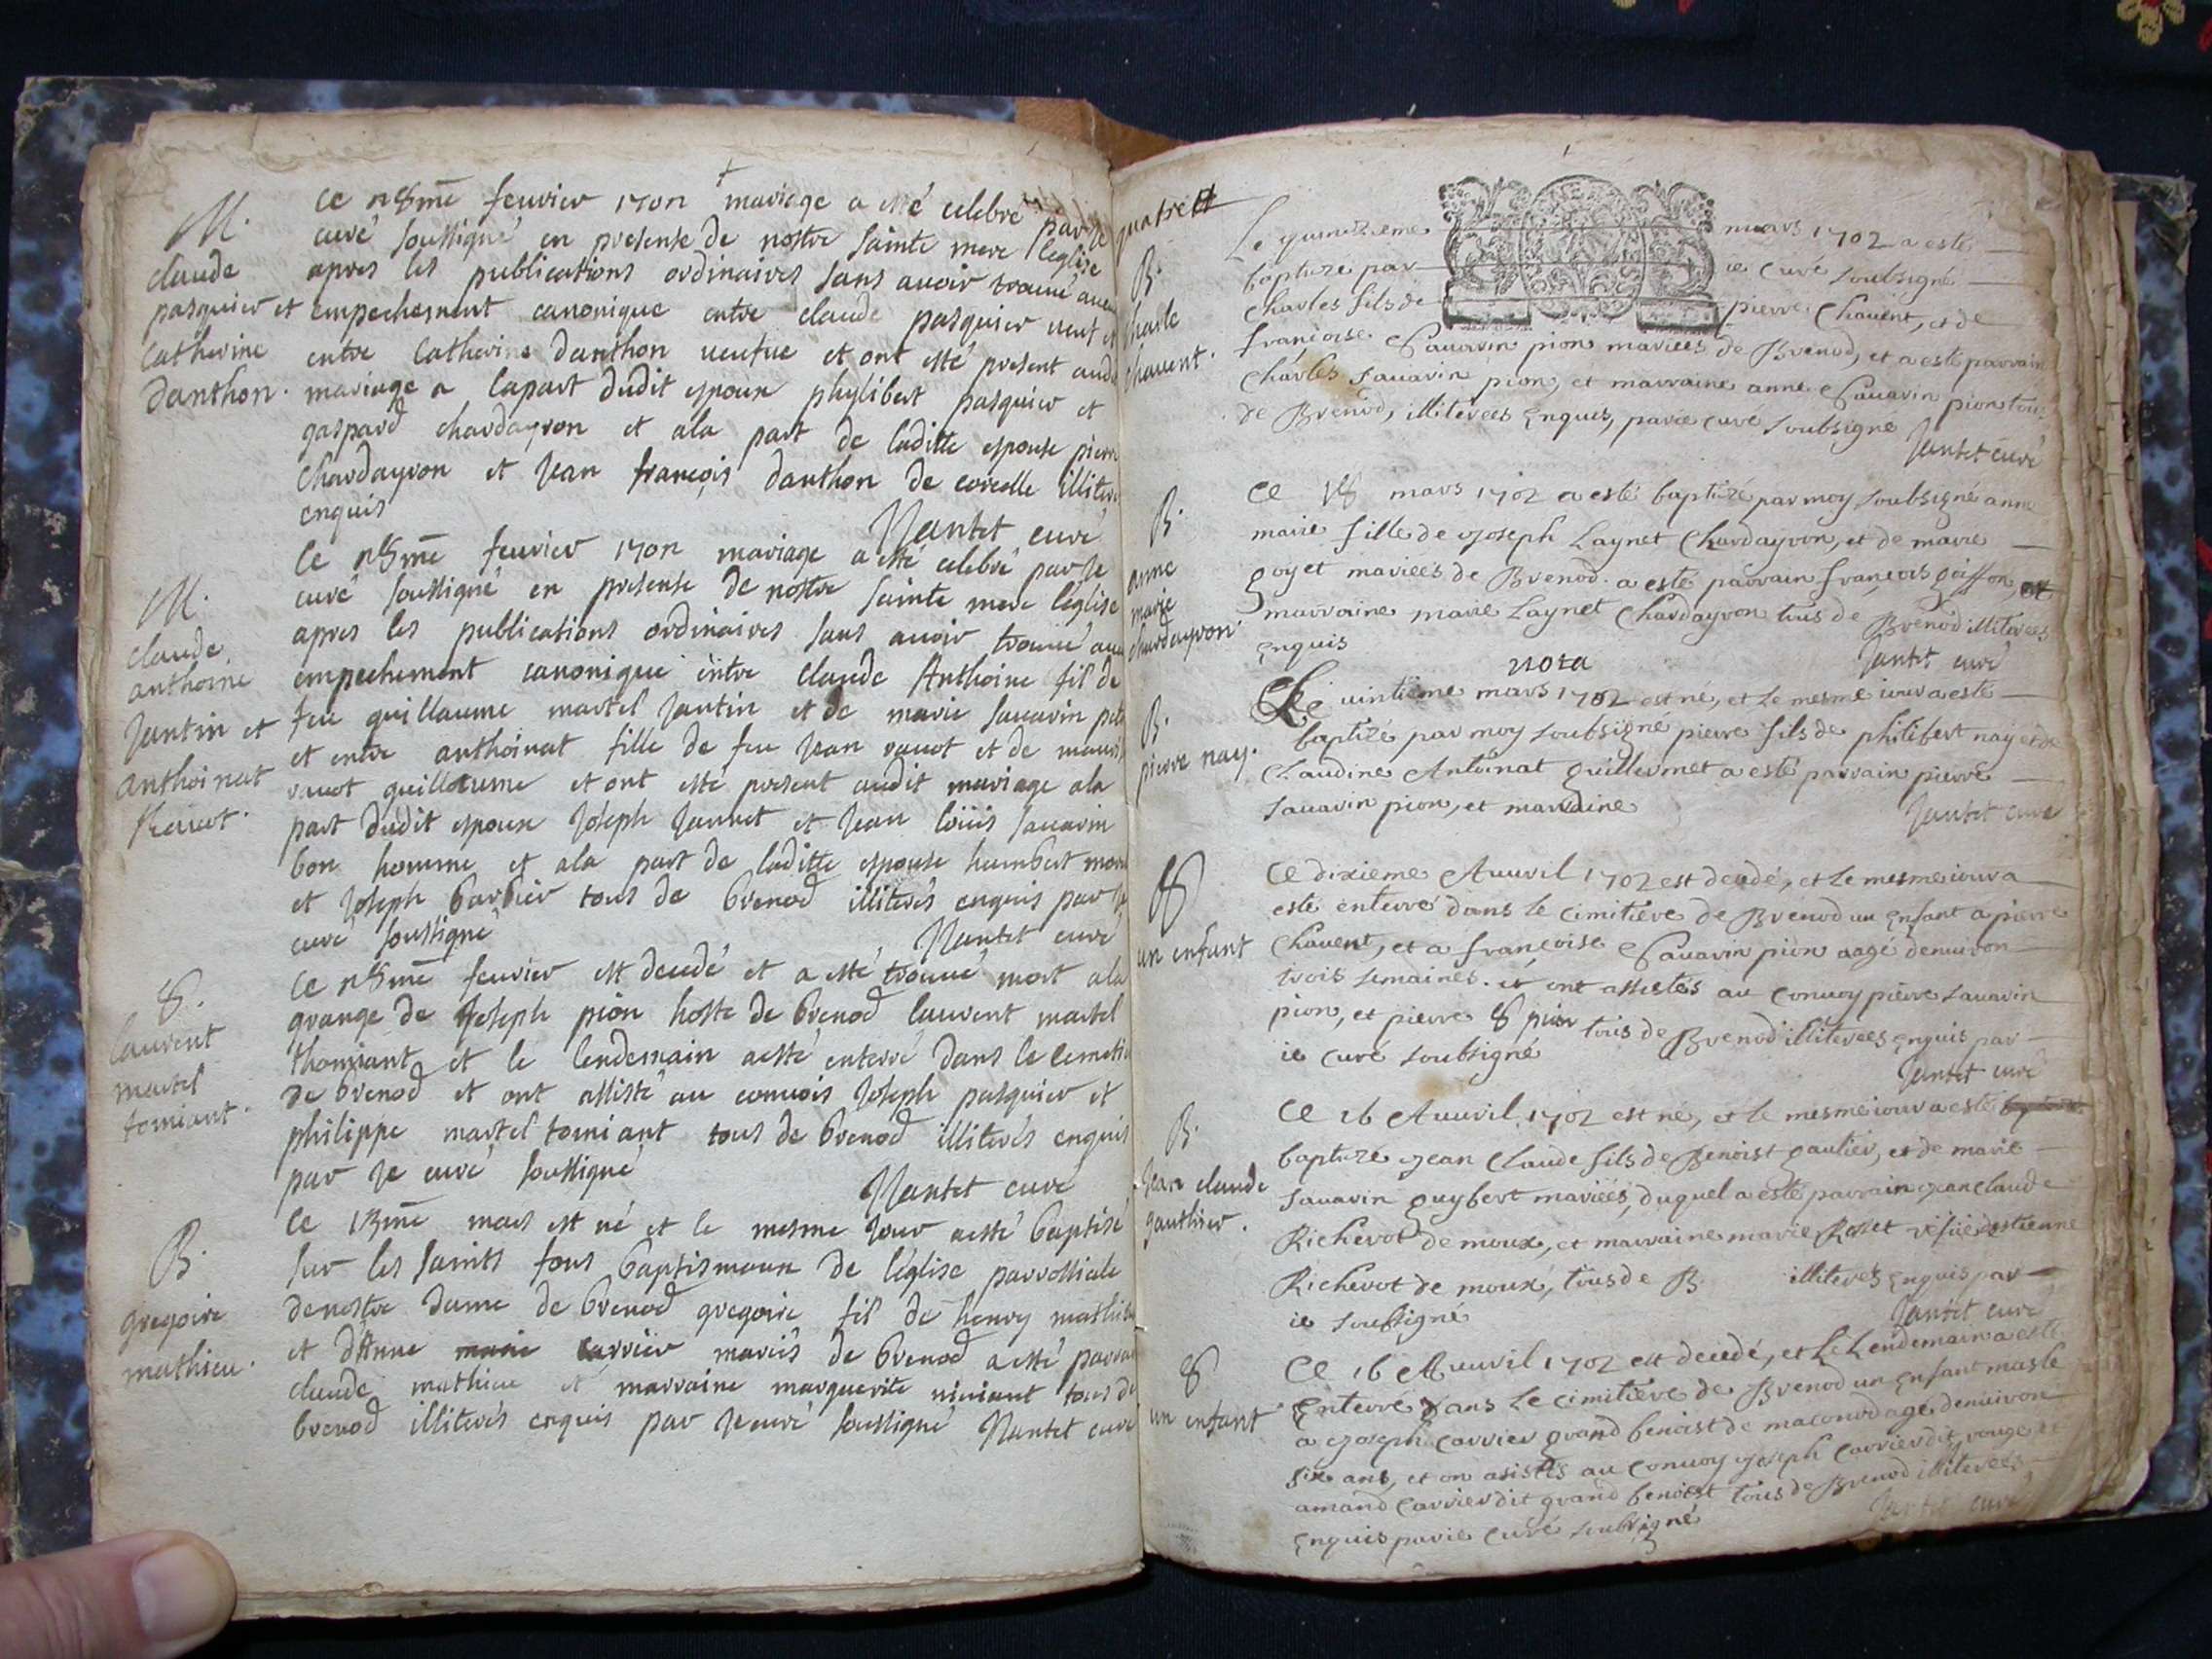 M.
claude
pasquier et
Catherine
Danthon.
feurier mariage a esté celebré par le
curé soussigné en presense de nostre sainte mere l'eglise
apres les publications ordinaires sans auoir trouué
empechement canonique entre claude pasquier ueuf et
entre Catherine danthon ueufue et ont esté present
mariage a lapart dudit espoux phylibert pasquier et
gaspard chardayron et ala part de laditte espouse
Chardayron et Jean françois danthon de corcelle
enquis
Jantet curé
M.
claude
anthoine
Jantin et
anthoinat
Rauot.
feurier mariage a esté celebré par Je
curé soussigné en presense de nostre sainte mere l'eglise
apres les publications ordinaires sans auoir trouué
empechement canonique entre claude Anthoine fil de
feu guillaume martel Jantin et de marie sauarin
et entre anthoinat fille de feu Jean rauot et de
rauot guillaume et ont esté present audit mariage ala
part dudit espoux Joseph Jannet et Jean loüis sauarin
bon homme et ala part de laditte espouse humbert
et Joseph barbier tous de brenod illiterés enquis par Je
curé soussigné
Jantet curé
8.
laurent
martel
tomiant.
feurier est decedé et a esté trouué mort ala
grange de Joseph pion hoste de brenod laurent martel
thomiant et le lendemain aesté enterré dans le
de brenod et ont assisté au conuois Joseph pasquier et
philippe martel tomiant tous de brenod illiterés enquis
par Je curé soussigné
Jantet curé
B.
gregoire
mathieu.
Ce 13me mars est né et le mesme Jour aesté baptisé
sur les saints fons baptismaux de l'eglise parrossiale
denostre dame de brenod gregoire fil de henry
et d'Anne marie carrier mariés de brenod aesté
claude mathieu et marraine marguerite niniant tous de
brenod illiterés enquis par Je curé soussigné Jantet curé
quatre
B.
charle
chauent.
Le quinzieme mars 1702 a esté
baptize par ie curé soubsigné
Charles fils de pierre Chauent, et de
françoise Sauarin pion mariees de Brenod, et a esté parrain
Charles sauarin pion, et marraine anne Sauarin pion tous
de Brenod, illiterees enquis, parie curé soubsigné
Jantet curé
B.
anne
marie
chardayron.
Ce 18 mars 1702 a esté baptizé par moy soubsigné anne
marie fille de Joseph Laynet Chardayron, et de marie
goyet mariees de Brenod. a esté parrain françois goiffon, et
marraine marie Laynet Chardayron tous de Brenod illiterees
enquis
Jantet curé
nota
B.
pierre nay.
Le uintieme mars 1702 est né, et le mesme iour a esté
baptizé par moy soubsigné pierre fils de philibert nay et de
Claudine Antoinat guillermet a esté parrain pierre
sauarin pion, et marraine
Jantet curé
8
un enfant
Ce dixieme Auuril 1702 est decedé, et le mesme iour a
esté enterré dans le cimitiere de Brenod un enfant a pierre
Chauent, et a françoise Sauarin pion aagé denuiron
trois semaines. et ont assistés au Conuoy pierre sauarin
pion, et pierre S pion tous de Brenod illiterees enquis par
ie curé soubsigné
Jantet curé
B.
Jean claude
gauthier.
Ce 16 Auuril 1702 est né, et le mesme iour a esté baptize
baptize Jean Claude fils de Benoist gautier, et de marie
sauarin guybert mariees, duquel a esté parrain Jean claude
Richerot de moux, et marraine marie Rosset destienne
Richerot de moux, tous de B. illiteres enquis par
ie soubsigné
Jantet curé
8
un enfant
Ce 16 Auuril 1702 est decedé, et Le Lendemain a esté
Enterré dans Le cimitiere de Brenod un enfant masle
a Joseph Carrier grand benoist de maconod agé denuiron
six ans, et on asistés au Conuoy Joseph Carrier dit rouge et
amand Carrier dit grand benoist tous de Brenod illiterees
enquis parie curé soubsigné
Jantet curé